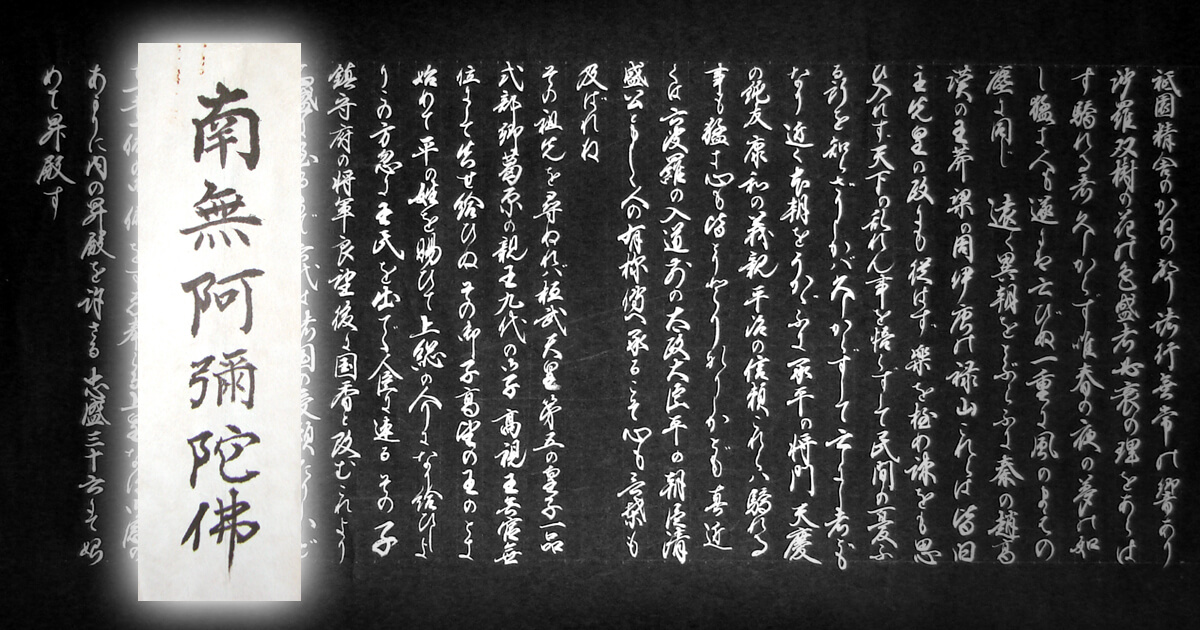 祇園精舎のかねの声諸行無常の響あり
沙羅双樹の花の色盛者必衰の理をあらは
す驕れる者久からず唯春の夜の夢の如
し猛き人も遂には亡びぬ一重に風のまへの
塵に同じ 遠く異朝をとぶらふに秦の趙高
漢の王莽梁の周伊唐の禄山これらは皆旧
主先皇の政にも従はず楽を極め諫をも思
ひ入れず天下の乱れん事を悟らずして民間の憂ふ
る所を知らざりしかば久からずして亡にし者ども
なり近く本朝をうかゞふに承平の将門天慶
の純友康和の義親平治の信頼これらは驕れる
事も猛き心も皆とりどりなりしかども真近
くは六波羅の入道前の太政大臣平の朝臣清
盛公と申しし人の有様伝へ承るこそ心も言葉も
及ばれね
その祖先を尋ぬれば桓武天皇第五の皇子一品
式部卿葛原の親王九代の 高視王無官無
位にして失せ給ひぬその御子高望の王のとき
始めて平の姓を賜ひて上総の介になり給ひしよ
りこの方忽に王氏を出でて人臣に連るその子
鎮守府の将軍良望後に国香と改むこれより
南無阿彌陀佛
あまりに内の昇殿を許さる忠盛三十六にて始
めて昇殿す